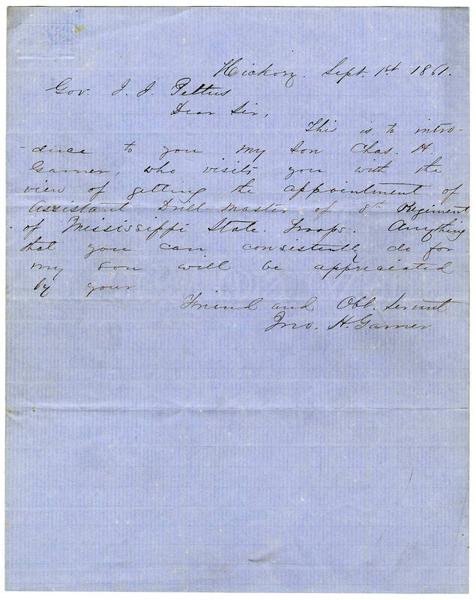 Hickory Sept. 1st 1861.
Gov. J. J. Pettus
Dear Sir,
This is to intro-
-duce to you my Son Chas. H.
Garner, who visits you with the
view of getting the appointment of
Assistant Drill Master of 8th Regiment
of Mississippi State Troops. Anything
that you can consistently do for
my Son will be appreciated
by your
Friend and Obt. Servant
Jno. H. Garner